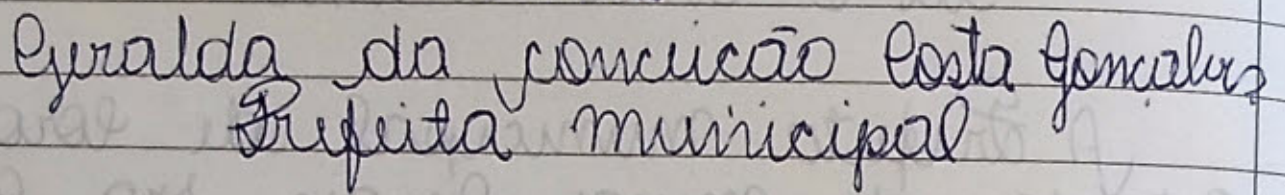 Geralda da conceicão Costa Goncalves
Prefeita municipal